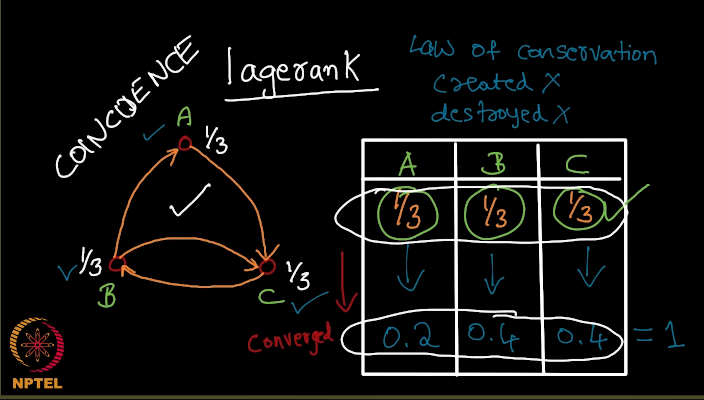 COINCIDENCE
Pagerank
Law of conservation
created X
destroyed X
A
1/3
1/3
B
C
1/3
A B C
1/3 1/3 1/3
Converged
0.2 0.4 0.4 = 1
NPTEL